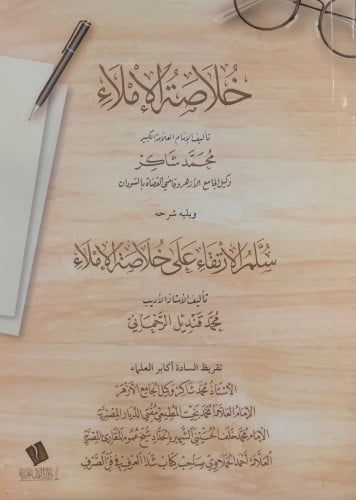 خُلَاصَةُ الإِمْلَاءِ
تأليف الإمام العلامة الكبير
محمد شاكر
وكيل الجامع الأزهر وقاضي القضاة بالسودان
ويليه شرحه
سُلَّمُ الارْتِقَاءِ عَلَى خُلَاصَةِ الإِمْلَاءِ
تأليف الأستاذ الأديب
محمد قنديل الرحماني
تقريظ السادة أكابر العلماء
الأستاذ محمد شاكر وكيل الجامع الأزهر
الإمام العلامة محمد بخيت المطيعي مفتي الديار المصرية
الإمام محمد خلف الحسيني الشهير بالحداد شيخ عموم المقارئ المصرية
العلامة أحمد الحملاوي صاحب كتاب شذا العرف في فن الصرف